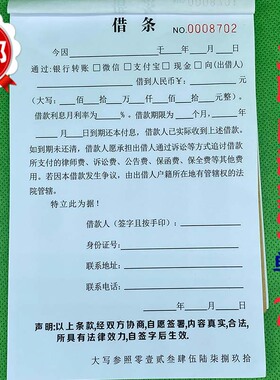 借条
NO.0008702
今因　　　　于　年　月　日
通过：银行转账□微信□支付宝□现金□向（出借人）
借到人民币￥：　　　元
（大写：　佰　拾　万　仟　佰　拾　元整）。
借款利息月利率为　%。借款期限为　个月，　年
月　日到期还本付息，借款人已实际收到上述借款，
如到期未还清，借款人愿承担出借人通过诉讼等方式追讨借款
所支付的律师费、诉讼费、公告费、保函费、保全费等其他费
用。若因本借款发生争议，由出借人户籍所在地有管辖权的法
院管辖。
特立此为据！
借款人（签字且按手印）：
身份证号：
联系地址：
联系电话：
年　月　日
声明：以上条款，经双方协商，自愿签署，内容真实，合法，
所具有法律效力，自签字后生效.
大写参照零壹贰叁肆伍陆柒捌玖拾